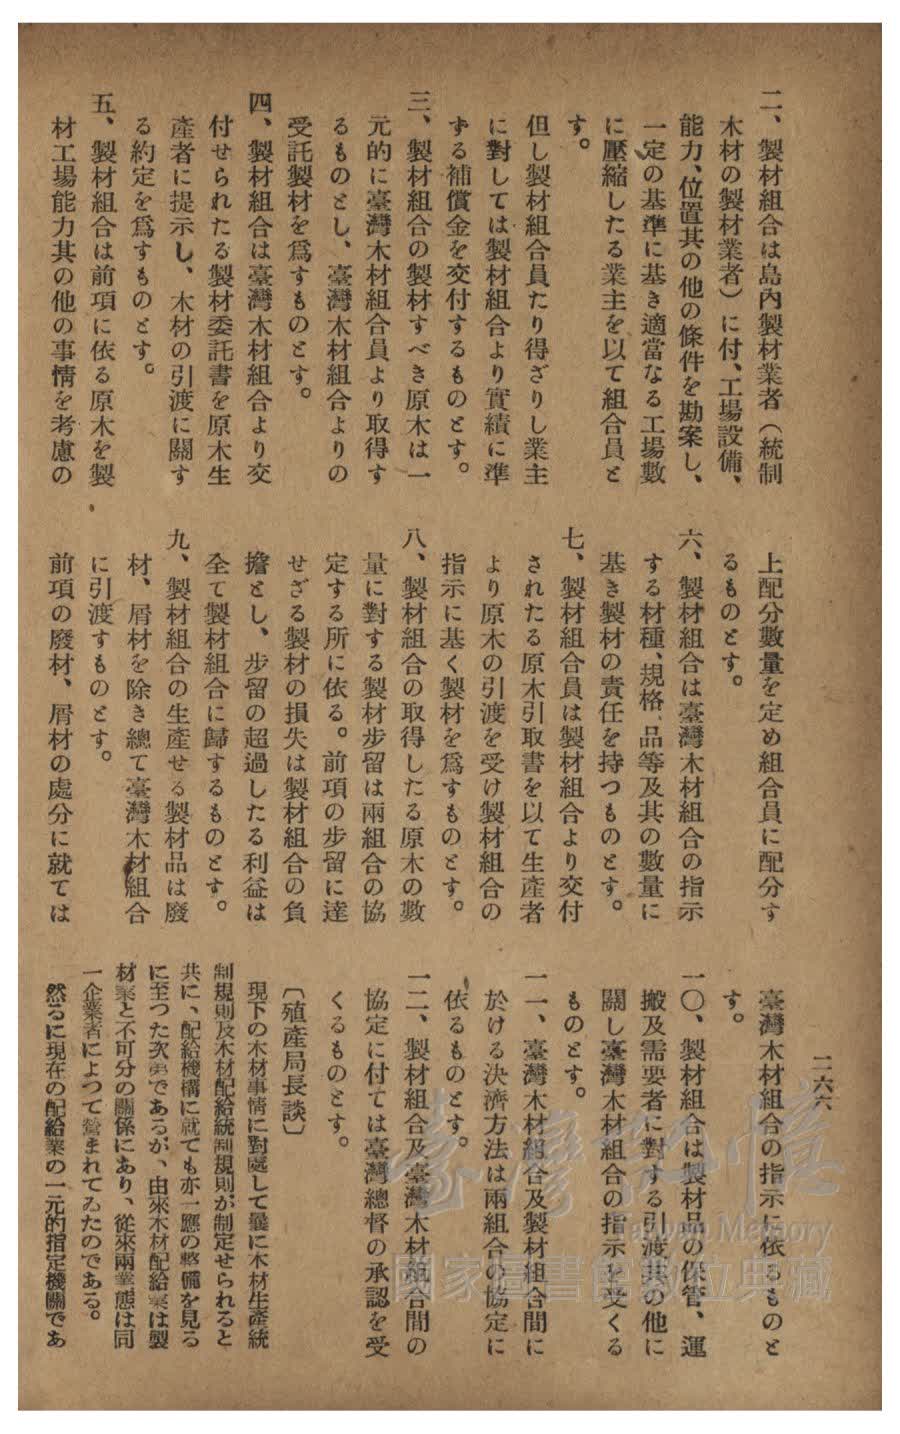 二、製材組合は島內製材業者(統制
木材の製材業者)に付、工場設備、
能力、位置其の他の條件を勘案し、
一定の基準に基き適當なる工場數
に壓縮したる業主を以て組合員と
す。
但し製材組合員たり得ざりし業主
に對しては製材組合より實績に準
ずる補償金を交付するものとす。
三、製材組合の製材すべき原木は一
元的に臺灣木材組合員より取得す
るものとし、臺灣木材組合よりの
受託製材を爲すものとす。
四、製材組合は臺灣木材組合より交
付せられたる製材委託書を原木生
產者に提示し、木材の引渡に關す
る約定を爲すものとす。
五、製材組合は前項に依る原木を製
材工場能力其の他の事情を考慮の
上配分數量を定め組合員に配分す
るものとす。
六、製材組合は臺灣木材組合の指示
する材種、規格、品等及其の數量に
基き製材の責任を持つものとす。
七、製材組合員は製材組合より交付
されたる原木引取書を以て生產者
より原木の引渡を受け製材組合の
指示に基く製材を爲すものとす。
八、製材組合の取得したる原木の數
量に對する製材步留は兩組合の協
定する所に依る。前項の步留に達
せざる製材の損失は製材組合の負
擔とし、步留の超過したる利益は
全て製材組合に歸するものとす。
九、製材組合の生產せる製材品は廢
材、屑材を除き總て臺灣木材組合
に引渡すものとす。
前項の廢材、屑材の處分に就ては
臺灣木材組合の指示に依るものと
す。
一〇、製材組合は製材品の保管、運
搬及需要者に對する引渡其の他に
關し臺灣木材組合の指示を受くる
ものとす。
一一、臺灣木材組合及製材組合間に
於ける決濟方法は兩組合の協定に
依るものとす。
一二、製材組合及臺灣木材組合間の
協定に付ては臺灣總督の承認を受
くるものとす。
〔殖產局長談〕
現下の木材事情に對處して曩に木材生產統
制規則及木材配給統制規則が制定せられると
共に、配給機構に就ても亦一應の整備を見る
に至つた次弟であるが、由來木材配給業は製
材業と不可分の關係にあり、從來兩業態は同
一企業者によつて營まれてゐたのである。
然るに現在の配給業の一元的指定機關であ
二六六
臺灣記憶
Taiwan Memory
國家圖書館數位典藏